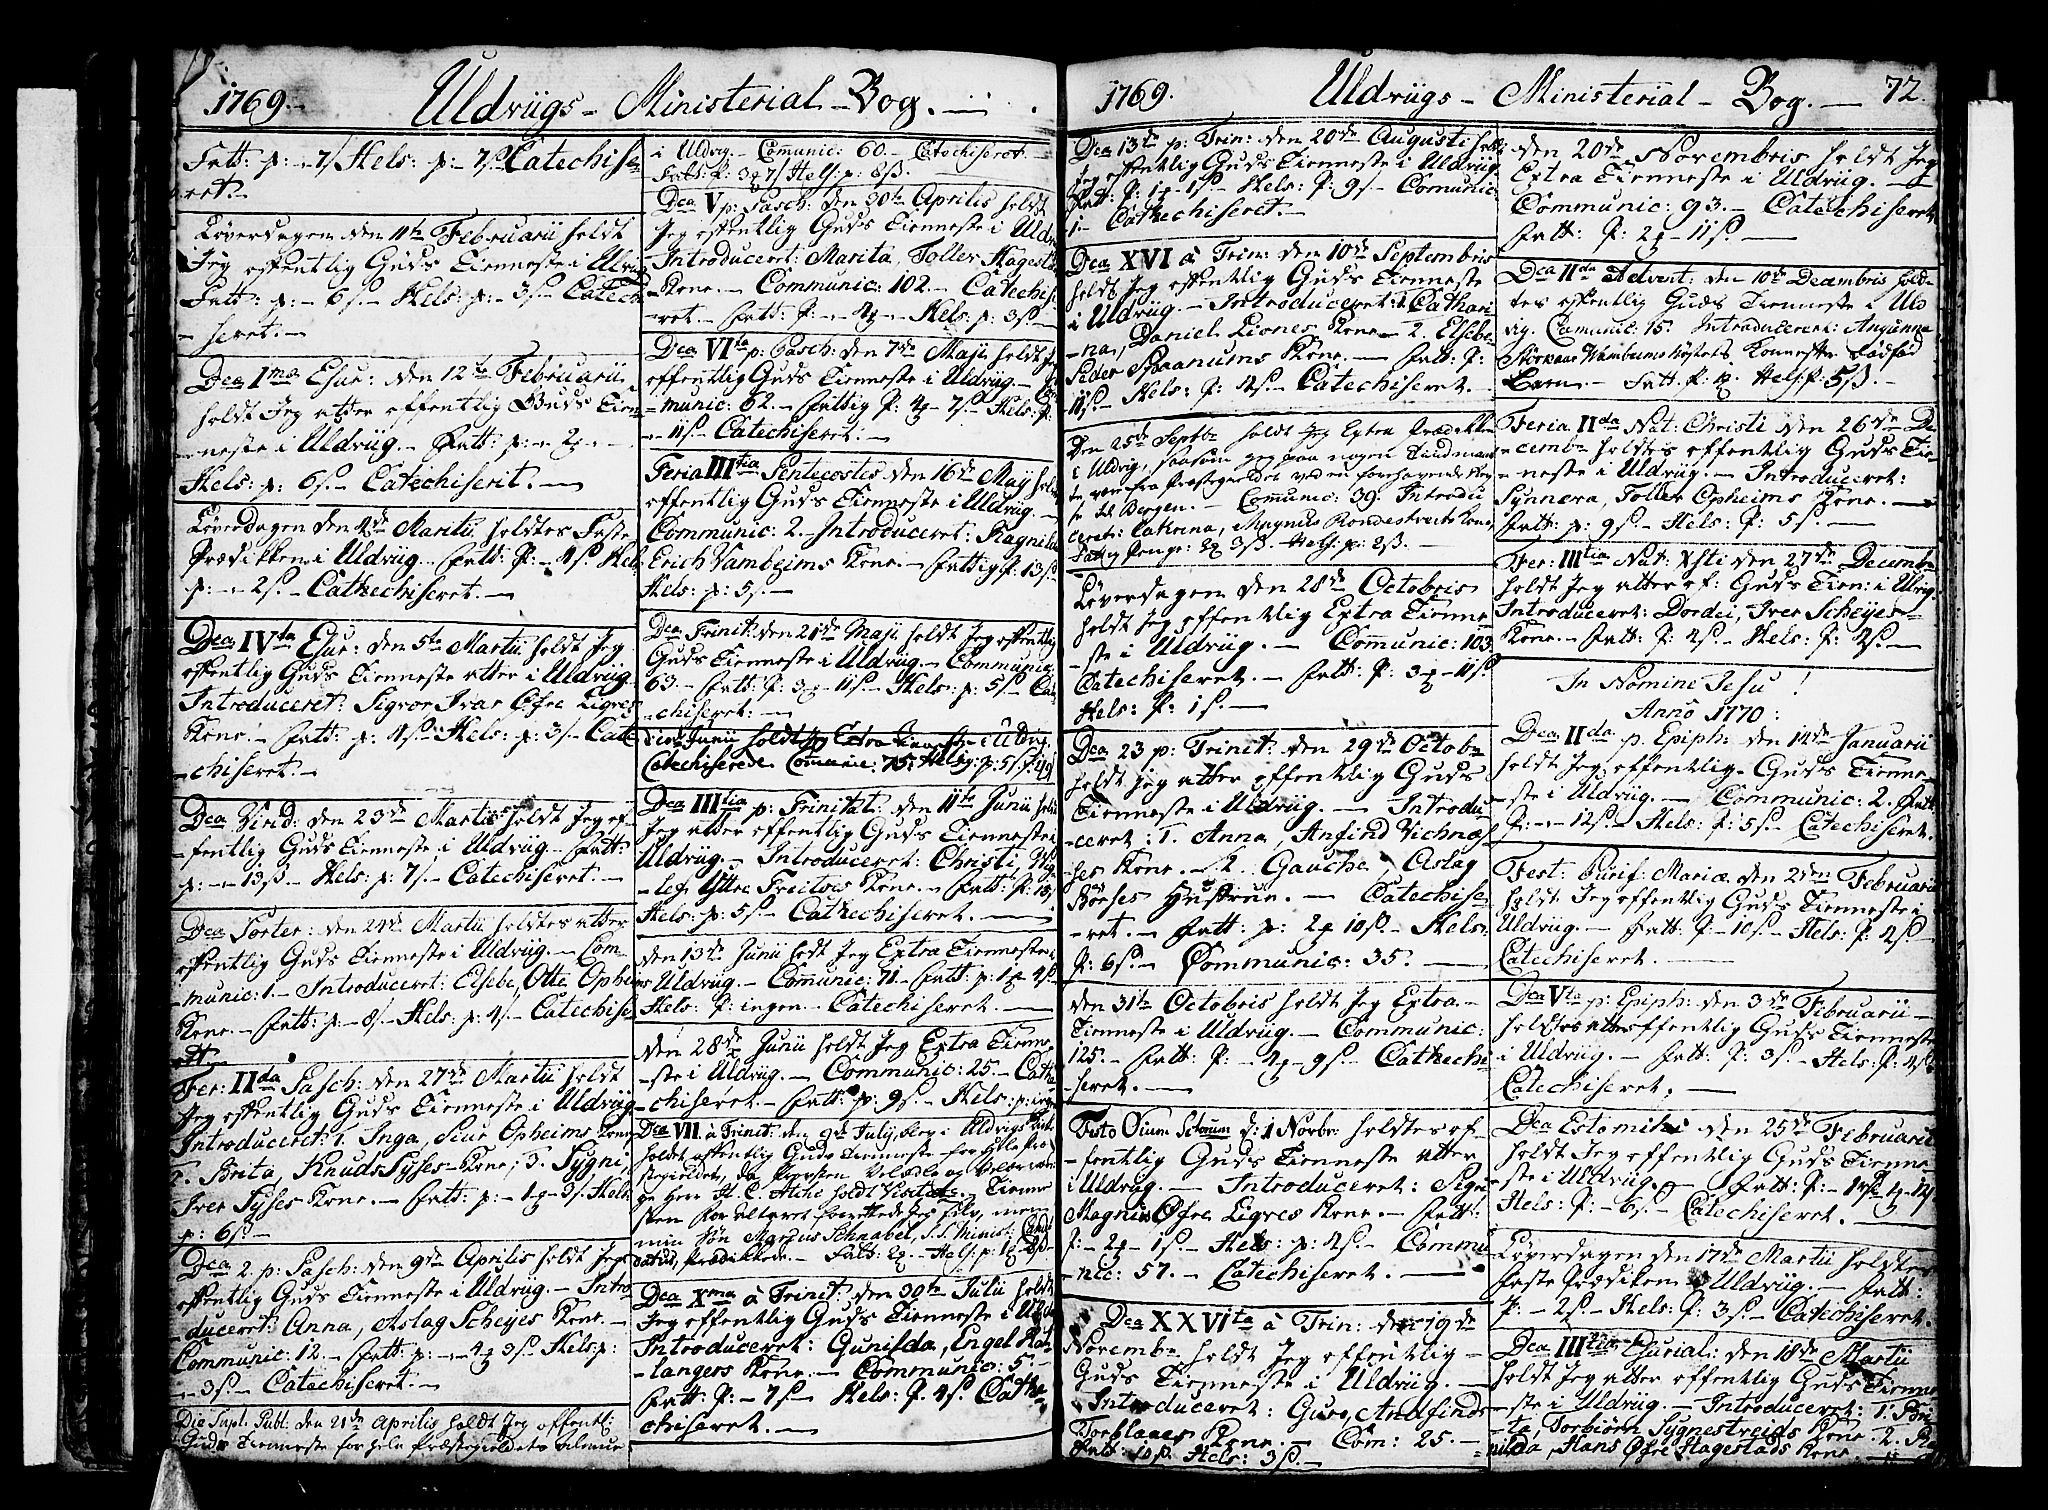 1769. Uldviigs - Ministerial - Bog.
Fatt: p: - 7/ Hels: p: - 7/ Catechise-
ret.-
Løverdagen den 11te Februarii holdt
Jeg offentlig Guds Tienneste i Uldvi
Fatt: p: - 6/3. - Hels: p: - 3/3. - Catechi
- seret. -
Dca 1ma Esur: den 12te Februarii
holdt Jeg atter offentlig Guds Tien-
- neste i Uldviig. - Fatt: p: - 2
Hels: p: 6/3. - Catechiserit. -
Løverdagen den 4de Martii holdtes Faste
Prædikken i Uldviig. - Fatt: P: - 4/3 Hels
p: - 2/3. - Cathechiseret. -
Dca IVta Esur: den 5te Martii holdt Jeg
offentlig Guds Tienneste atter i Uldviig
Introduceret: Sigvor Ivar Øfre Ligres
Kone. - Fatt: p: 4/3 - Hels: p: 3/ - Cate
- chiseret. -
Dca Virid: den 23de Martii holdt Jeg of-
- fentlig Guds Tienneste i Uldviig. - Fatt:
p: - 13/3. - Hels: p: 7/. - Catechiseret. -
Dca Porter: den 24de Martii holdtes atter
offentlig Guds Tienneste i Uldviig. - Com-
- munic: 1. - Introduceret: Elsebe, Otte Ophei
Kone. - Fatt: p: - 8/ - Hels: p: 4/. - Catechise
Fer: IIda Pasch: den 27de Martii holdt
Jeg offentlig Guds Tienneste i Uldviig
Introduceret: 1. Inga, Siur Opheims Kone
2. Brita, Knuds Sysses - Kone; 3. Sygni,
Iver Sysses Kone. - Fatt: p: - 1 - 3/ Hels
p: 6/3 -
Dca 2. p: Pasch: den 9de Aprilis holdt Jeg
offentlig Guds Tienneste i Uldviig. - Intro
- duceret: Anna, Aslag Scheyes Kone. -
Communic: 12. - Fatt: p: - 4 3/3 Hels: p:
- 3/3 - Catechiseret. -
Die Supl: Publ: den 21de Aprilis holdt Jeg offentl:
Guds Tienneste for hele Præstegieldets Almue
i Uldvig. - Communic: 60. - Catechiseret.
Fatt: P: 3 7/ Hels: p: 8/3.
Dca V p: Pasch: den 30te Aprilis holdt
Jeg offentlig Guds Tienneste i Uldv
Introduceret: Marita, Toller Hagesta
- Kone. - Communic: 102. - Catechise
ret. - Fatt: P: - 4 - Hels: p: 3/3. -
Dca VIta p: Pasch: den 7de Maji holdt Jeg
offentlig Guds Tienneste i Uldviig. - Co
- munic: 62. - Fattig P: 4 - 7/3. - Hels: p:
- 11/3 - Catechiseret. -
Feria IIItia Pentecostes den 16de Maji holdt
offentlig Guds Tienneste i Uldviig. -
Communic: 2. - Introduceret: Ragnilda
Erich Vambeims Kone. - Fattig P: 13/3
Hels: p: 5/3. -
Dca Trinit: den 21de Maji holdt Jeg offentlig
Guds Tienneste i Uldviig. - Communic:
63. - Fatt: P: 3 - 11/3 - Hels: p: 5/3 Cate
- chiseret: -
Junii holdt Jeg Extra Tienneste i Uldvig
Catechiserede Communic: 75.
Dca IIItia p: Trinitat: den 11te Junii holdt
Jeg atter offentlig Guds Tienneste i
Uldviig. - Introduceret: Christi,
- lef Yttre Freitoes Kone. - Fatt: P: 13/
Hels: p: 5/3 - Cathechiseret. -
den 13de Junii holdt Jeg Extra Tienneste i
Uldviig. - Communic: 71 - Fatt: p: 1 4/3
Hels: P: ingen - Catechiseret. -
den 28de Junii holdt Jeg Extra Tienne-
- ste i Uldviig. - Communic: 25. - Cathe
- chiseret. - Fatt: p: 9/3 - Hels: p: ingen
Dca VII à Trinit: den 9de July blev i Uldvigs Kirke
holdt offentlig Guds Tienneste for Hele Præ-
stegieldet, da Provsten Velædle og Velærværdi-
ge Herr H. C. Atche holdt Visitatz. - Tienne
sten for alteret forrettede Jeg selv, men
min Søn Marcus Schnabel, S. S. Minist: Candi
datus, prædikkede. - Fatt: 2. - Hels: p: 1 8/3
Dca Xma à Trinit: den 30te Julii holdt
Jeg offentlig Guds Tienneste i Uldvi
Introduceret: Gunilda, Engel Røt
- langers Kone. - Communic: 5 -
Fatt: P: - 7/3 - Hels: P: 4/3. Cathe
chiseret. -
1769. Uldviigs - Ministerial - Bog. - 72.
Dca 13de p: Trin: den 20de Augusti holdt
Jeg offentlig Guds Tienneste i Uldviig
Fatt: P: 1 - 1/3 - Hels: P: 9/. - Communic
1. - Cathechiseret. -
Dca XVI à Trin: den 10de Septembris
holdt Jeg offentlig Guds Tienneste
i Uldviig. - Introduceret: 1. Cathari
- na, Daniel Liones Kone - 2. Elsebe
Peder Spaanums Kone. - Fatt: P:
11/3. - Hels: P: 4/3. - Catechiseret. -
Den 25de Septbr holdt Jeg Extra Prædikken
i Uldvig, saasom jeg paa nogen Tiid maat-
te være fra Præstegieldet ved en forhavende Rey-
se til Bergen. - Communic: 39. Introdu
ceret: Cathrina, Magnus Rondestveits Kone,
Fattig Penge: 2 3/3. - Hels: p: 2/3.
Løverdagen den 28de Octobris
holdt Jeg offentlig Extra Tienne
- ste i Uldviig. - Communic: 103
Catechiseret. - Fatt: P: 3 - 11/3
Hels: P: 1/3 -
Dca 23 p: Trinit: den 29de Octobr
holdt Jeg atter offentlig Guds
Tienneste i Uldviig. - Introdu
- ceret: 1. Anna, Anfind Vichnæs
ses Kone. - 2. Gauche, Aslag
Røeses Hustrue. - Catechise
- ret. - Fatt: p: 2 10/3 - Hels:
P: 6/3 - Communic: 35. -
den 31te Octobris holdt Jeg Extra -
Tienneste i Uldviig. - Communic:
125. - Fatt: P: - 4 - 9/3 - Catheche
- seret. -
Festo Oium Sctorum d: 1 Novbr: holdtes of-
- fentlig Guds Tienneste atter
i Uldviig. - Introduceret: Signi
Magnus Øfre Ligres Kone. - Fatt:
P: - 2 - 1/3. - Hels: p: 4/3. - Commu
- nic: 57. - Catechiseret. -
Dca XXVIta à Trin: den 19de
Novembr holdt Jeg offentlig -
Guds Tienneste i Uldviig. -
Introduceret: Guro, Andfinds
Torblaaes Kone. - Com: 25. -
Fatt: 10/3. Hels: 3/3. -
den 20de Novembris holdt Jeg
Extra Tienneste i Uldviig. -
Communic: 93. - Catechiseret
Fatt: P: 2 - 11/3. -
Dca IIda Advent: den 10de Decembris hold-
tes offentlig Guds Tienneste i Uld
vig. Communic: 15. Introduceret: Anjanna
Barn. - Fatt: P: 4. Hels: P: 5/3. -
Feria IIda Nat: Christi den 26de De
cembr holdtes offentlig Guds Tie-
- neste i Uldviig. - Introduceret:
Synneva, Toller Opheims Kone. -
Fatt: p: 9/3 - Hels: P: 5/3. -
Fer: IIItia Nat: Xsti den 27de Decembr
holdt Jeg atter of: Guds Tien: i Uldvig.
Introduceret: Dordei, Iver Scheyes -
Kone. - Fatt: P: 4/3 - Hels: P: 4/3. -
In Nomine Jesu!
Anno 1770:
Dca IIda p. Epiph: den 14de Januarii
holdt Jeg offentlig Guds Tienne-
- ste i Uldviig. - Communic: 2. Fatt:
P: - 12/3. - Hels: P: 5/3. - Catechiseret.
Fest: Purif: Mariæ den 2den Februarii
holdt Jeg offentlig Guds Tienneste i
Uldviig. - Fatt: P: - 10/3 - Hels: P: 4/3 -
Catechiseret. -
Dca Vta p: Epiph: den 3de Februarii -
holdtes atter offentlig Guds Tienneste
i Uldviig. - Fatt: P: 3/3 - Hels: P: 4/3
Catechiseret. -
Dca Estomihi den 25de Februarii
holdt Jeg offentlig Guds Tienne-
- ste i Uldviig. - Fatt: P: -
Hels: P: - 6/3 - Catechiseret. -
Løverdagen den 17de Martii holdtes
Faste Prædiken i Uldviig. - Fatt:
P: - 2/3. - Hels: P: 3/3. - Catechiseret.
Dca IIItia Esurial: den 18de Martii
holdt Jeg atter offentlig Guds Tienne
- ste i Uldviig. - Introduceret: 1. Bri-
ta, Torbiørn Sygnestveids Kone 2. Rag
nilda, Hans Øfre Hagestads Kone. -